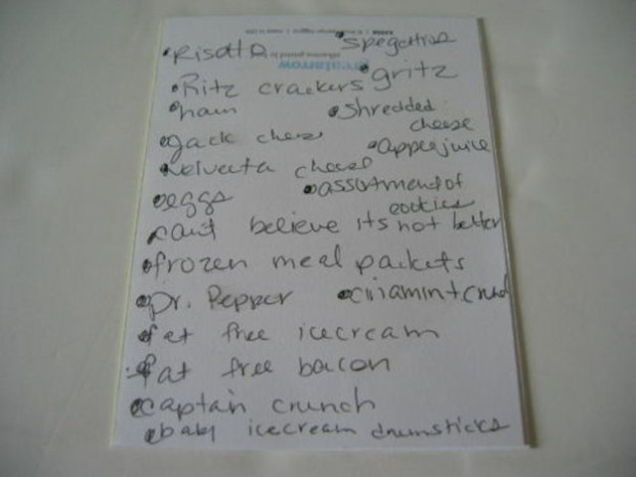 Risotto
spegattios
Ritz crackers
gritz
ham
shredded
cheese
jack cheese
apple juice
Velveeta cheese
eggs
assortment of
cookies
cant believe its not better
frozen meal packets
Dr. Pepper
cinamint crunch
fat free icecream
fat free bacon
captain crunch
baby icecream drumsticks